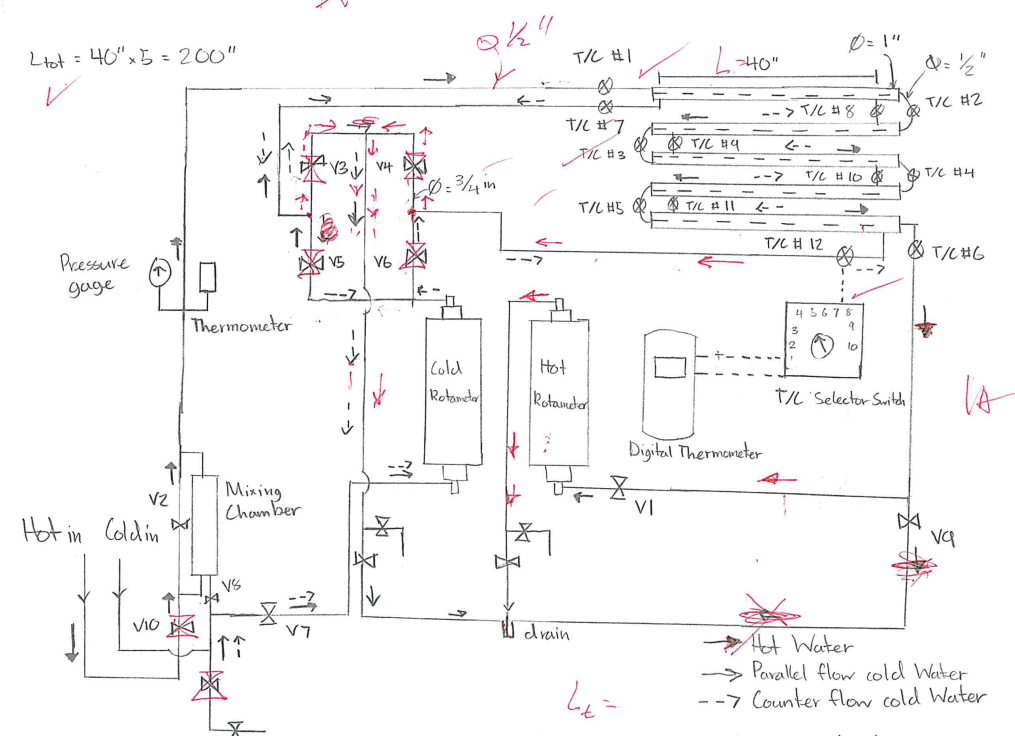 Ltot = 40" x 5 = 200"
Ø 1/2"
T/C #1
L = 40"
Ø = 1"
Ø = 1/2"
T/C #2
T/C #7
T/C #8
T/C #3
T/C #9
T/C #10
T/C #4
T/C #5
T/C #11
T/C #12
T/C #6
V3
V4
Ø = 3/4 in
V5
V6
Pressure
gage
Thermometer
4 5 6 7 8
3
9
2
10
1
T/C Selector Switch
Cold
Rotameter
Hot
Rotameter
+
Digital Thermometer
V2
Mixing
Chamber
V1
V9
Hot in
Cold in
V8
V10
V7
drain
Hot Water
Parallel flow cold Water
Counter flow cold Water
Lt =